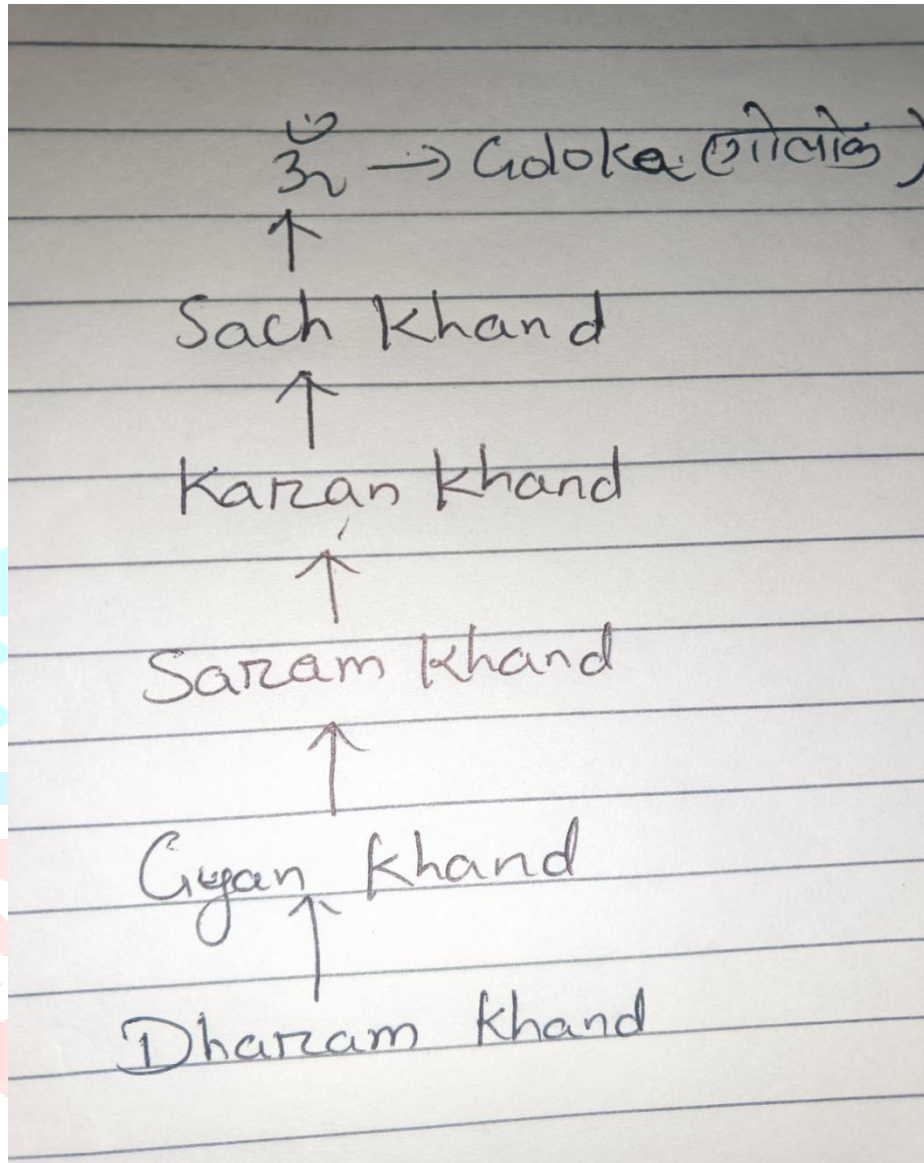 ॐ → Goloka (गोलोक)
↑
Sach Khand
↑
Karan Khand
↑
Saram Khand
↑
Gyan Khand
↑
Dharam Khand